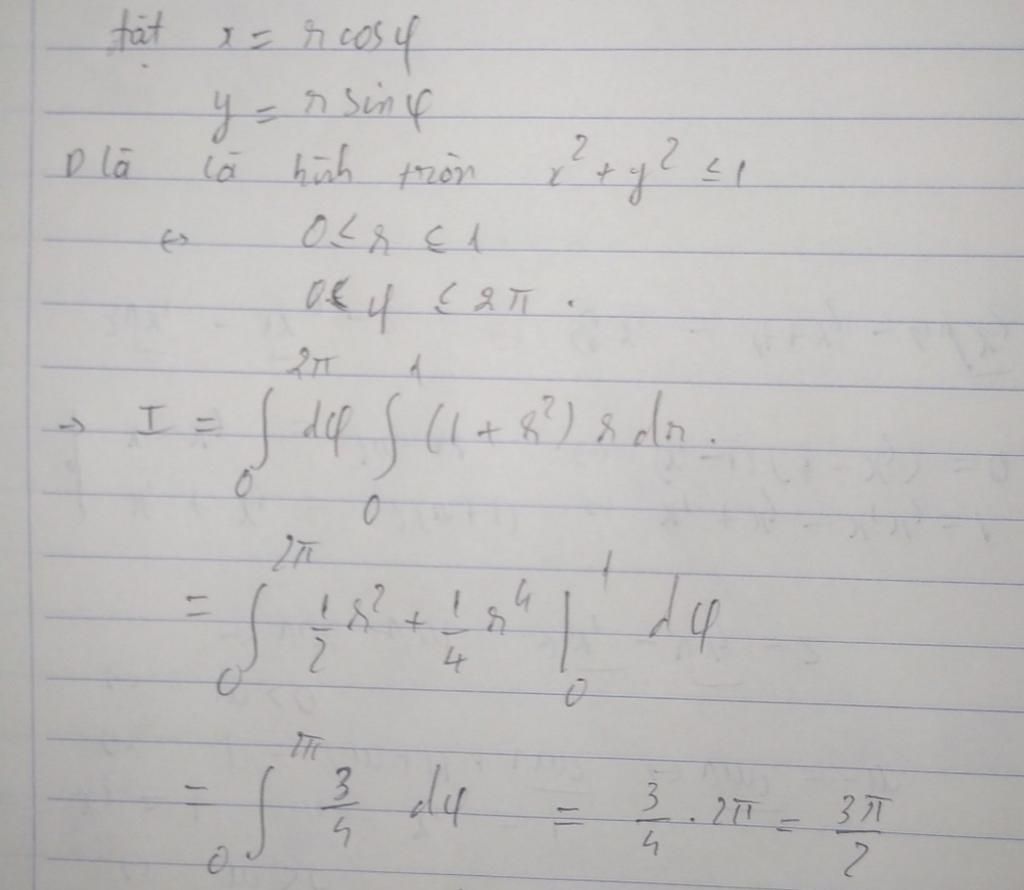 Đặt x = r cosφ
y = r sinφ
D là là hình tròn x² + y² ≤ 1
⇔ 0 ≤ r ≤ 1
0 ≤ φ ≤ 2π.
→ I = ∫₀^{2π} dφ ∫₀^1 (1 + r²) r dr.
= ∫₀^{2π} 1/2 r² + 1/4 r⁴ |₀^1 dφ
= ∫₀^{2π} 3/4 dφ = 3/4 · 2π = 3π/2